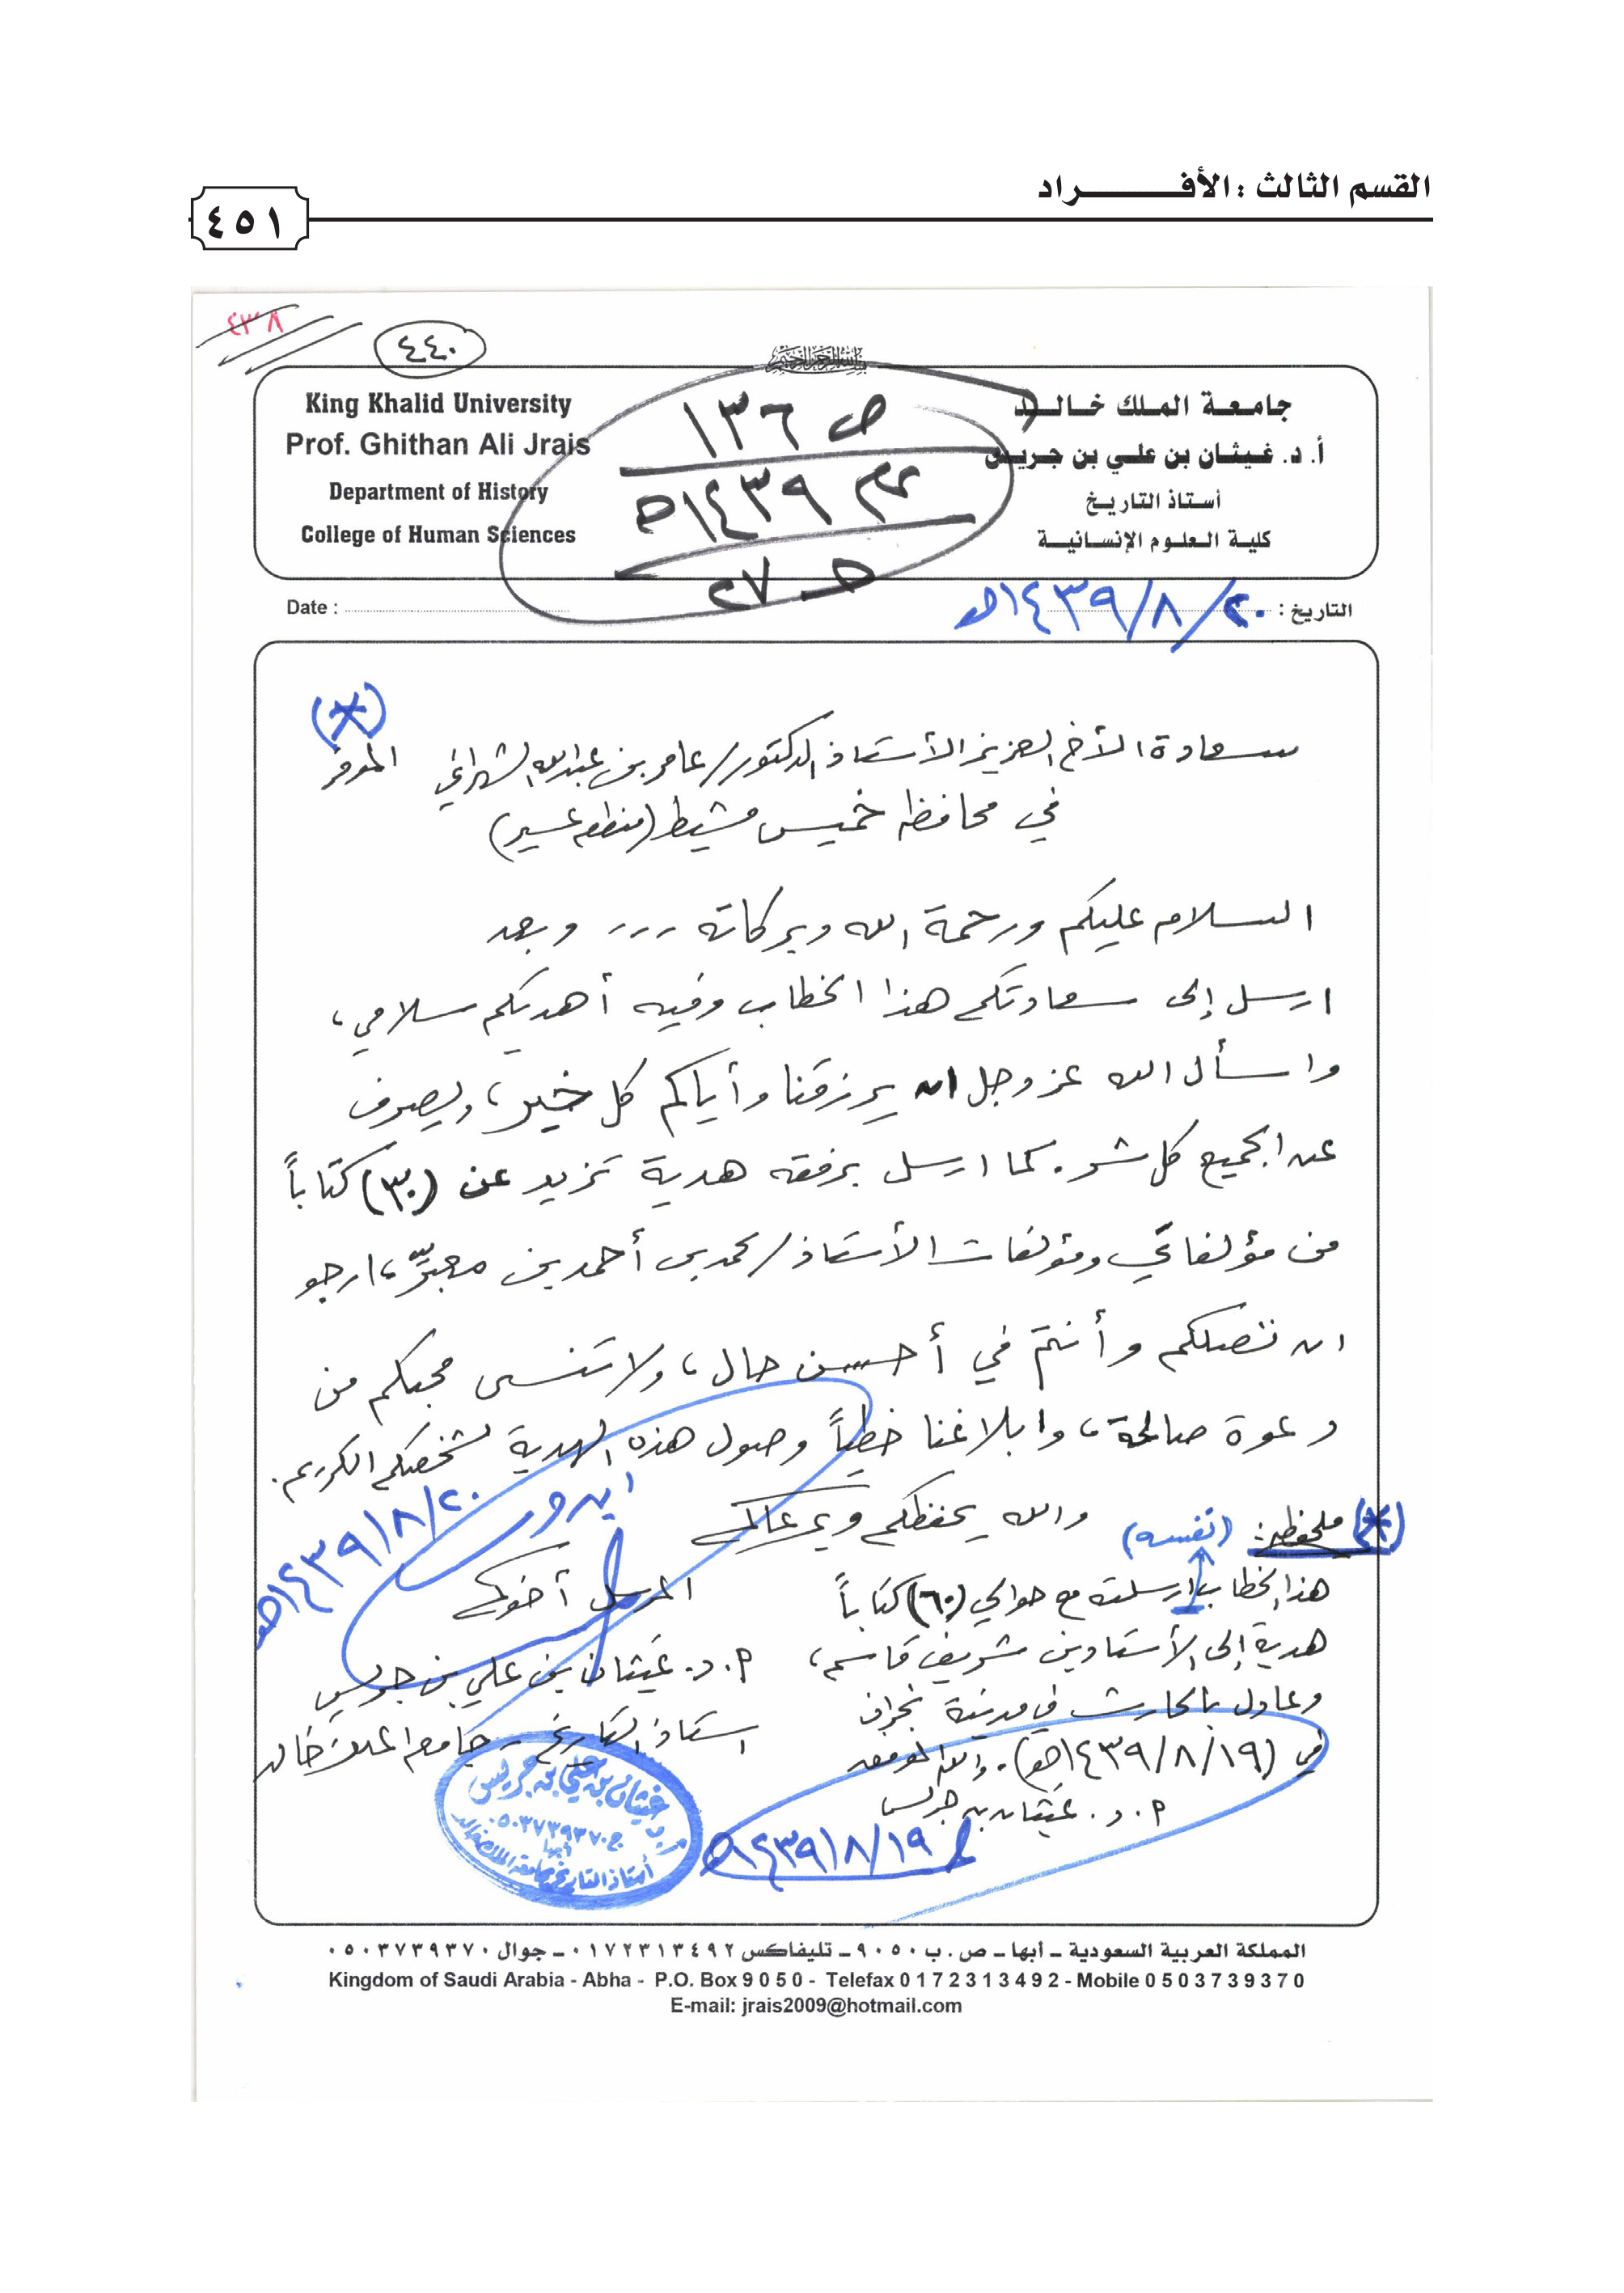 القسم الثالث : الأفـــــــراد
٤٥١
٤٣٨
٤٤٠
بسم الله الرحمن الرحيم
King Khalid University
Prof. Ghithan Ali Jrais
Department of History
College of Human Sciences
ص ١٣٦
١٤٣٩هـ
حـ ٢٧
جامعـة الملك خالـد
أ. د. غيثان بن علي بن جريس
أستاذ التاريخ
كلية العلوم الإنسانية
Date :
التاريخ : ٢٠/٨/١٤٣٩هـ
(*)
سعادة الأخ العزيز الأستاذ الدكتور/ عامر بن عبدالله الشهراني الموقر
في محافظة خميس مشيط (منطقة عسير)
السلام عليكم ورحمة الله وبركاته ... وبعد
ارسل إلى سعادتكم هذا الخطاب وفيه أهديكم سلامي،
واسأل الله عز وجل ان يرزقنا وأياكم كل خير، ويصرف
عن الجميع كل شر. كما ارسل برفقه هدية تزيد عن (٣٠) كتاباً
من مؤلفاتي ومؤلفات الأستاذ/ محمد بن أحمد بن معبّر، ارجو
ان تصلكم وأنتم في أحسن حال، ولا تنسى محبكم من
دعوة صالحة، وابلاغنا خطياً وصول هذه الهدية لشخصكم الكريم.
والله يحفظكم ويرعاكم
٢٠/٨/١٤٣٩هـ
المرسل أخوكم
أ.د. غيثان بن علي بن جريس
استاذ التاريخ - جامعة الملك خالد
(*) ملحظة: (نفسه)
هذا الخطاب ارسلته مع حوالي (٦٠) كتاباً
هدية إلى الأستاذين شريف قاسم،
وعادل بالحارث في مدينة نجران
في (١٩/٨/١٤٣٩هـ). والله الموفق
أ.د. غيثان بن جريس
١٩/٨/١٤٣٩هـ
غيثان بن علي بن جريس
ج ٠٥٠٣٧٣٩٣٧٠
أبها
أستاذ التاريخ بجامعة الملك خالد
المملكة العربية السعودية ـ أبها ـ ص . ب ٩٠٥٠ ـ تليفاكس ٠١٧٢٣١٣٤٩٢ ـ جوال ٠٥٠٣٧٣٩٣٧٠
Kingdom of Saudi Arabia - Abha - P.O. Box 9 0 5 0 - Telefax 0 1 7 2 3 1 3 4 9 2 - Mobile 0 5 0 3 7 3 9 3 7 0
E-mail: jrais2009@hotmail.com